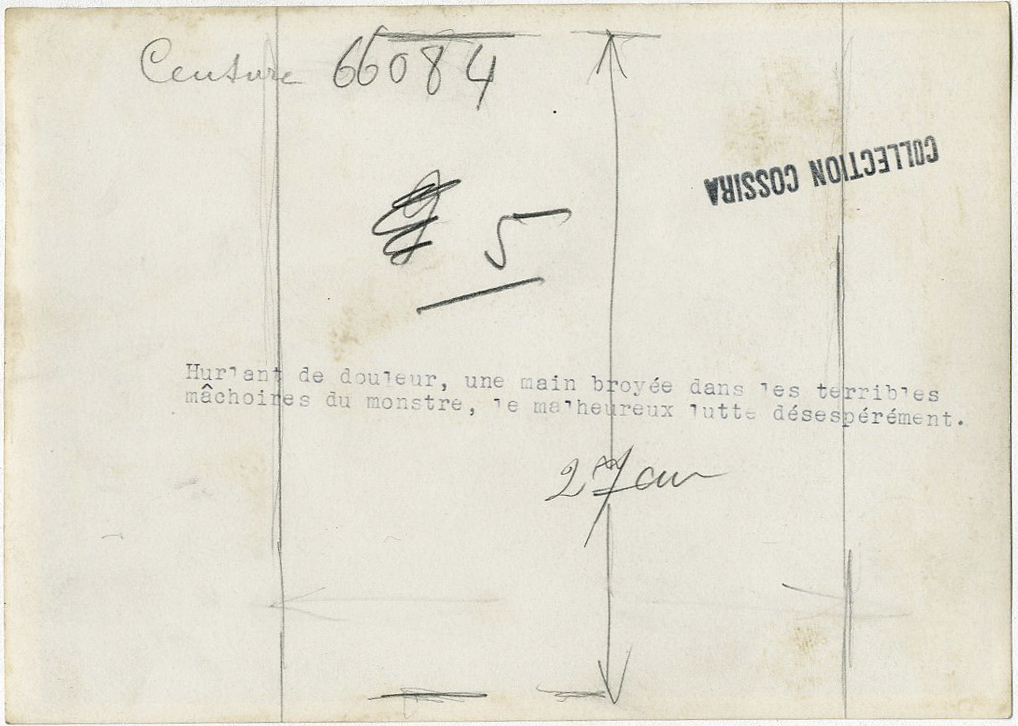 Censure 66084
COLLECTION COSSIRA
5
Hurlant de douleur, une main broyée dans les terribles
mâchoires du monstre, le malheureux lutte désespérément.